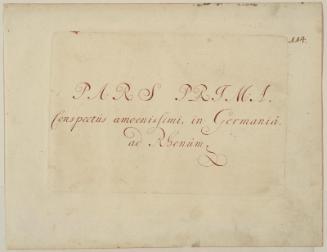 114.
PARS PRIMA.
Conspectûs amoenissimi, in Germaniâ.
ad Rhenúm.